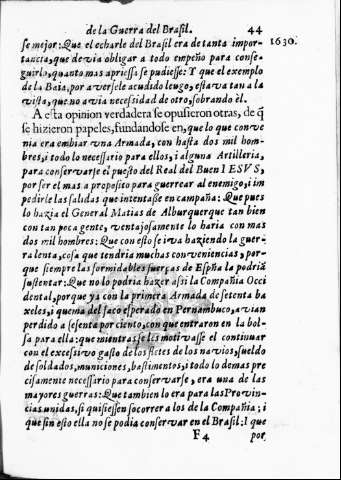 de la Guerra del Brasil. 44
1630.
ſe mejor: Que el echarle del Braſil era de tanta impor-
tancia, que devia obligar a todo empeño para conſe-
guirlo, quanto mas aprieſſa ſe pudieſſe: Y que el exemplo
de la Baìa, por averſele acudido leugo, eſtava tan a la
viſta, que no avia neceſsidad de otro, ſobrando èl.
A eſta opinion verdadera ſe opuſieron otras, de q̃
ſe hizieron papeles, fundandoſe en, que lo que conve
nia era embiar vna Armada, con haſta dos mil hom-
bres, i todo lo neceſſario para ellos, i alguna Artilleria,
para conſervarſe el pueſto del Real del Buen IESVS,
por ſer el mas a propoſito para guerrear al enemigo, i im
pedirle las ſalidas que intentaſſe en campaña: Que pues
lo hazia el General Matias de Alburquerque tan bien
con tan poca gente, ventajoſamente lo haria con mas
dos mil hombres: Que con eſto ſe iva haziendo la guer-
ra lenta, coſa que tendria muchas conveniencias, por-
que ſiempre las formidables fuerças de Eſpña la podriã
ſuſtentar: Que no lo podria hazer aſsi la Compañia Occi
dental, porque ya con la primera Armada de ſetenta ba
xeles, i quema del ſaco eſperado en Pernambuco, avian
perdido a ſeſenta por ciento, con que entraron en la bol-
ſa para ella: que mientras ſe les motivaſſe el continuar
con el exceſsivo gaſto de los fletes de los navios, ſueldo
de ſoldados, municiones, baſtimentos, i todo lo demas pre
ciſamente neceſſario para conſervarſe, era una de las
mayores guerras: Que tambien lo era para las Provin-
cias unidas, ſi quiſieſſen ſocorrer a los de la Compañia; i
que ſin eſto ella no ſe podia conſervar en el Braſil: I que
F 4 por